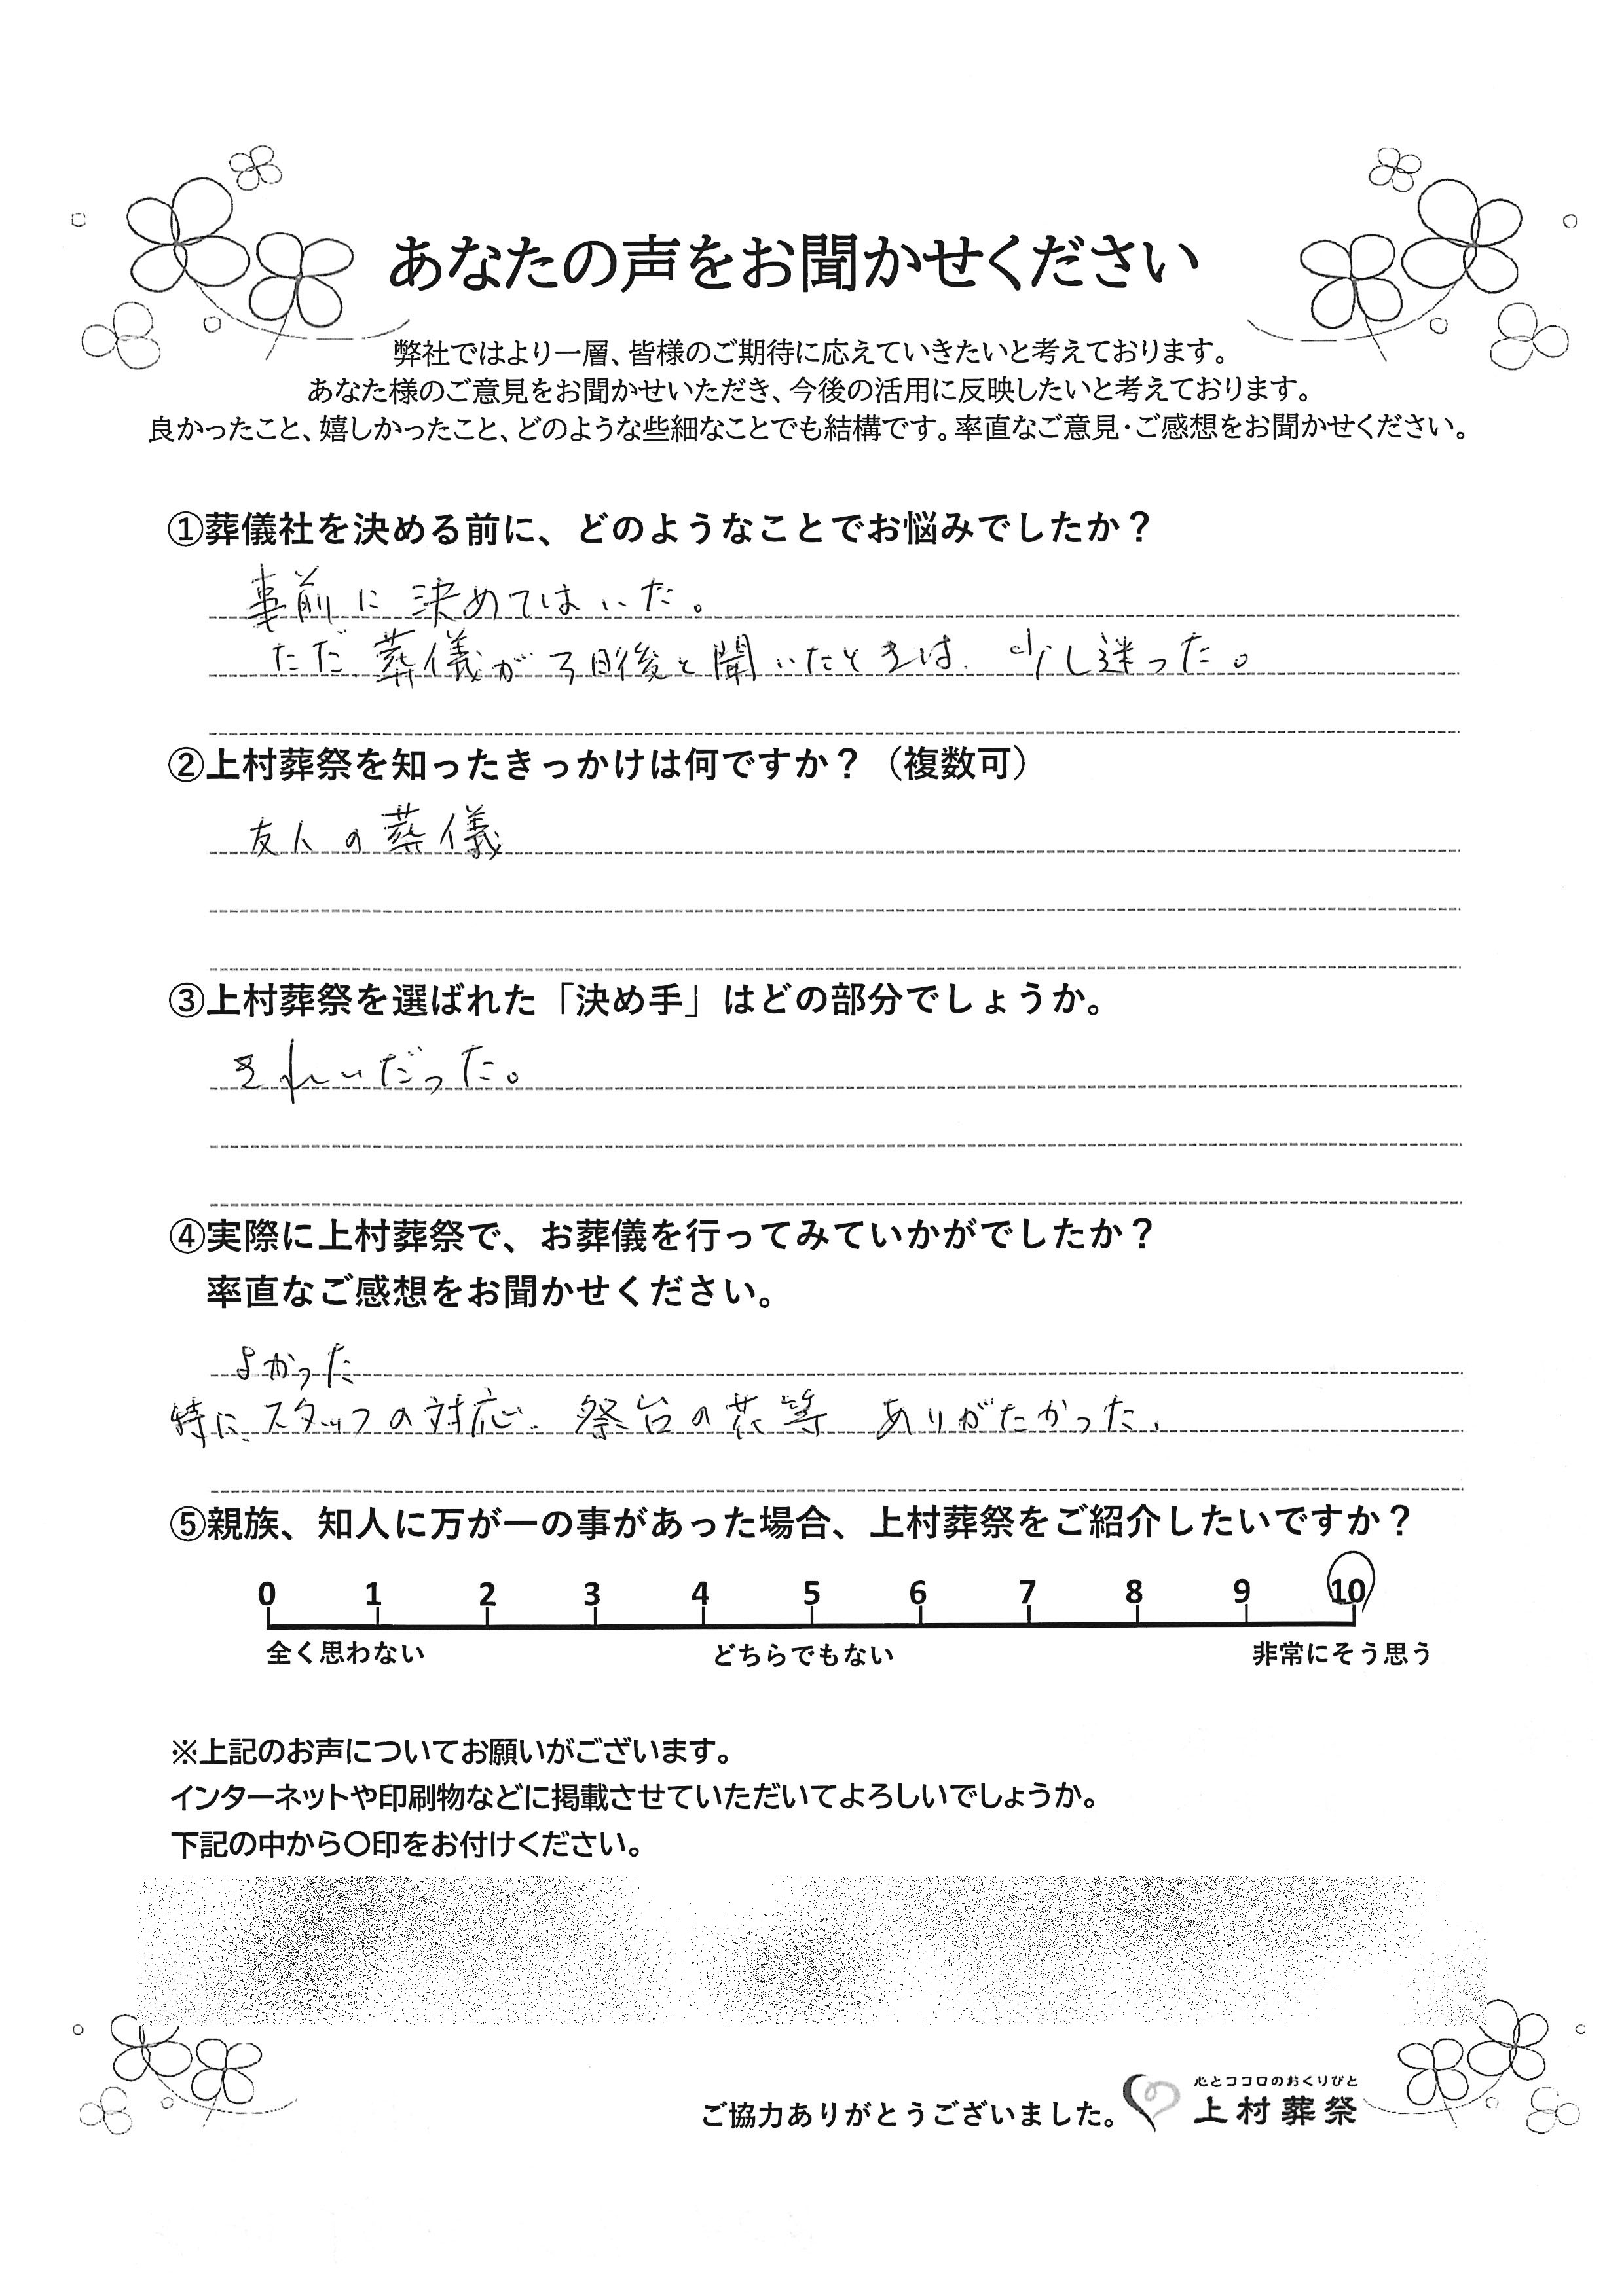 あなたの声をお聞かせください
弊社ではより一層、皆様のご期待に応えていきたいと考えております。
あなた様のご意見をお聞かせいただき、今後の活用に反映したいと考えております。
良かったこと、嬉しかったこと、どのような些細なことでも結構です。率直なご意見・ご感想をお聞かせください。
①葬儀社を決める前に、どのようなことでお悩みでしたか？
事前に決めてはいた。
ただ葬儀が3日後と聞いたときは、少し迷った。
②上村葬祭を知ったきっかけは何ですか？（複数可）
友人の葬儀
③上村葬祭を選ばれた「決め手」はどの部分でしょうか。
きれいだった。
④実際に上村葬祭で、お葬儀を行ってみていかがでしたか？
率直なご感想をお聞かせください。
よかった
特に、スタッフの対応、祭台の花等 ありがたかった、
⑤親族、知人に万が一の事があった場合、上村葬祭をご紹介したいですか？
0 1 2 3 4 5 6 7 8 9 10
全く思わない どちらでもない 非常にそう思う
※上記のお声についてお願いがございます。
インターネットや印刷物などに掲載させていただいてよろしいでしょうか。
下記の中から〇印をお付けください。
ご協力ありがとうございました。
心とココロのおくりびと
上村葬祭